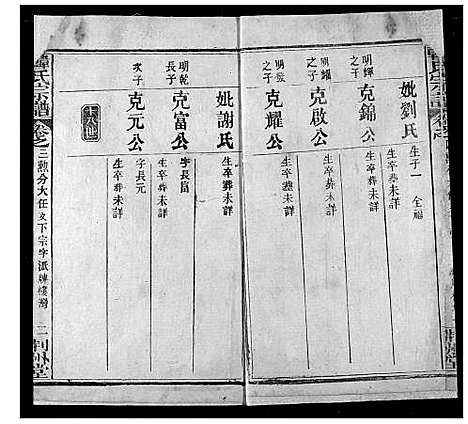 妣劉氏
生子一 全福
生卒葬未詳
明輝之子
克錦公
生卒葬未詳
明耀之子
克啟公
生卒葬未詳
之子
克耀公
生卒葬未詳
妣謝氏
生卒葬未詳
明乾長子
克富公
字長富
生卒葬未詳
次子
克元公
字長元
生卒葬未詳
氏宗譜
卷之三勲分大任支下宗字派牌樓灣
二
荆州堂